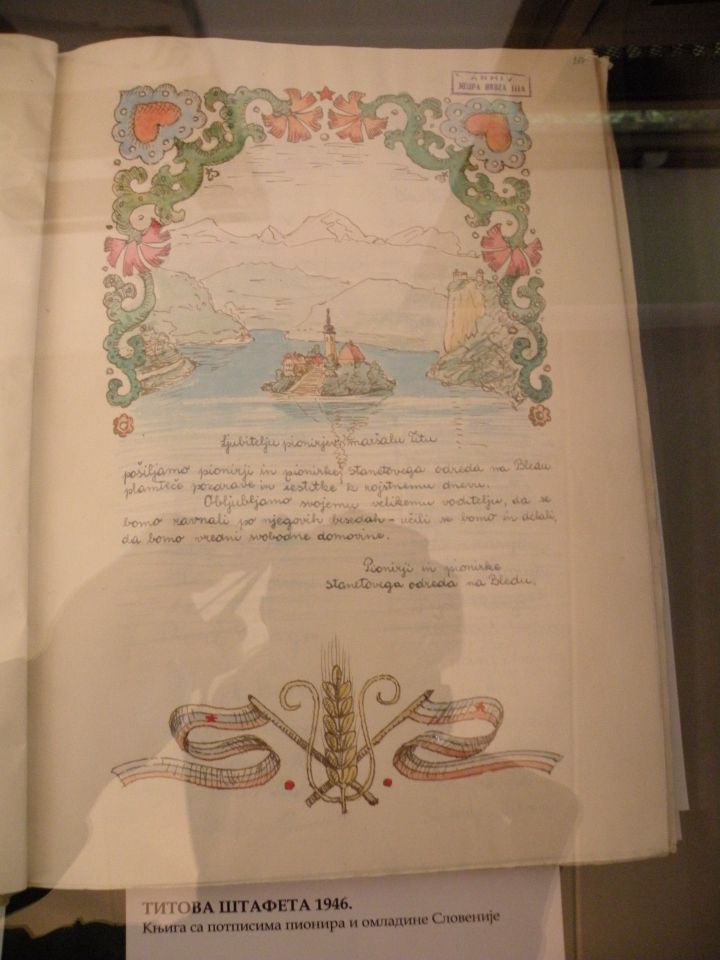 ARHIV
JOSIPA BROZA TITA
Ljubitelju pionirjev maršalu Titu
pošiljamo pionirji in pionirke stanetovega odreda na Bledu
plamteče pozdrave in čestitke k rojstnemu dnevu.
Obljubljamo svojemu velikemu voditelju, da se
bomo ravnali po njegovih besedah - učili se bomo in delali,
da bomo vredni svobodne domovine.
Pionirji in pionirke
stanetovega odreda na Bledu.
ТИТОВА ШТАФЕТА 1946.
Књига са потписима пионира и омладине Словеније